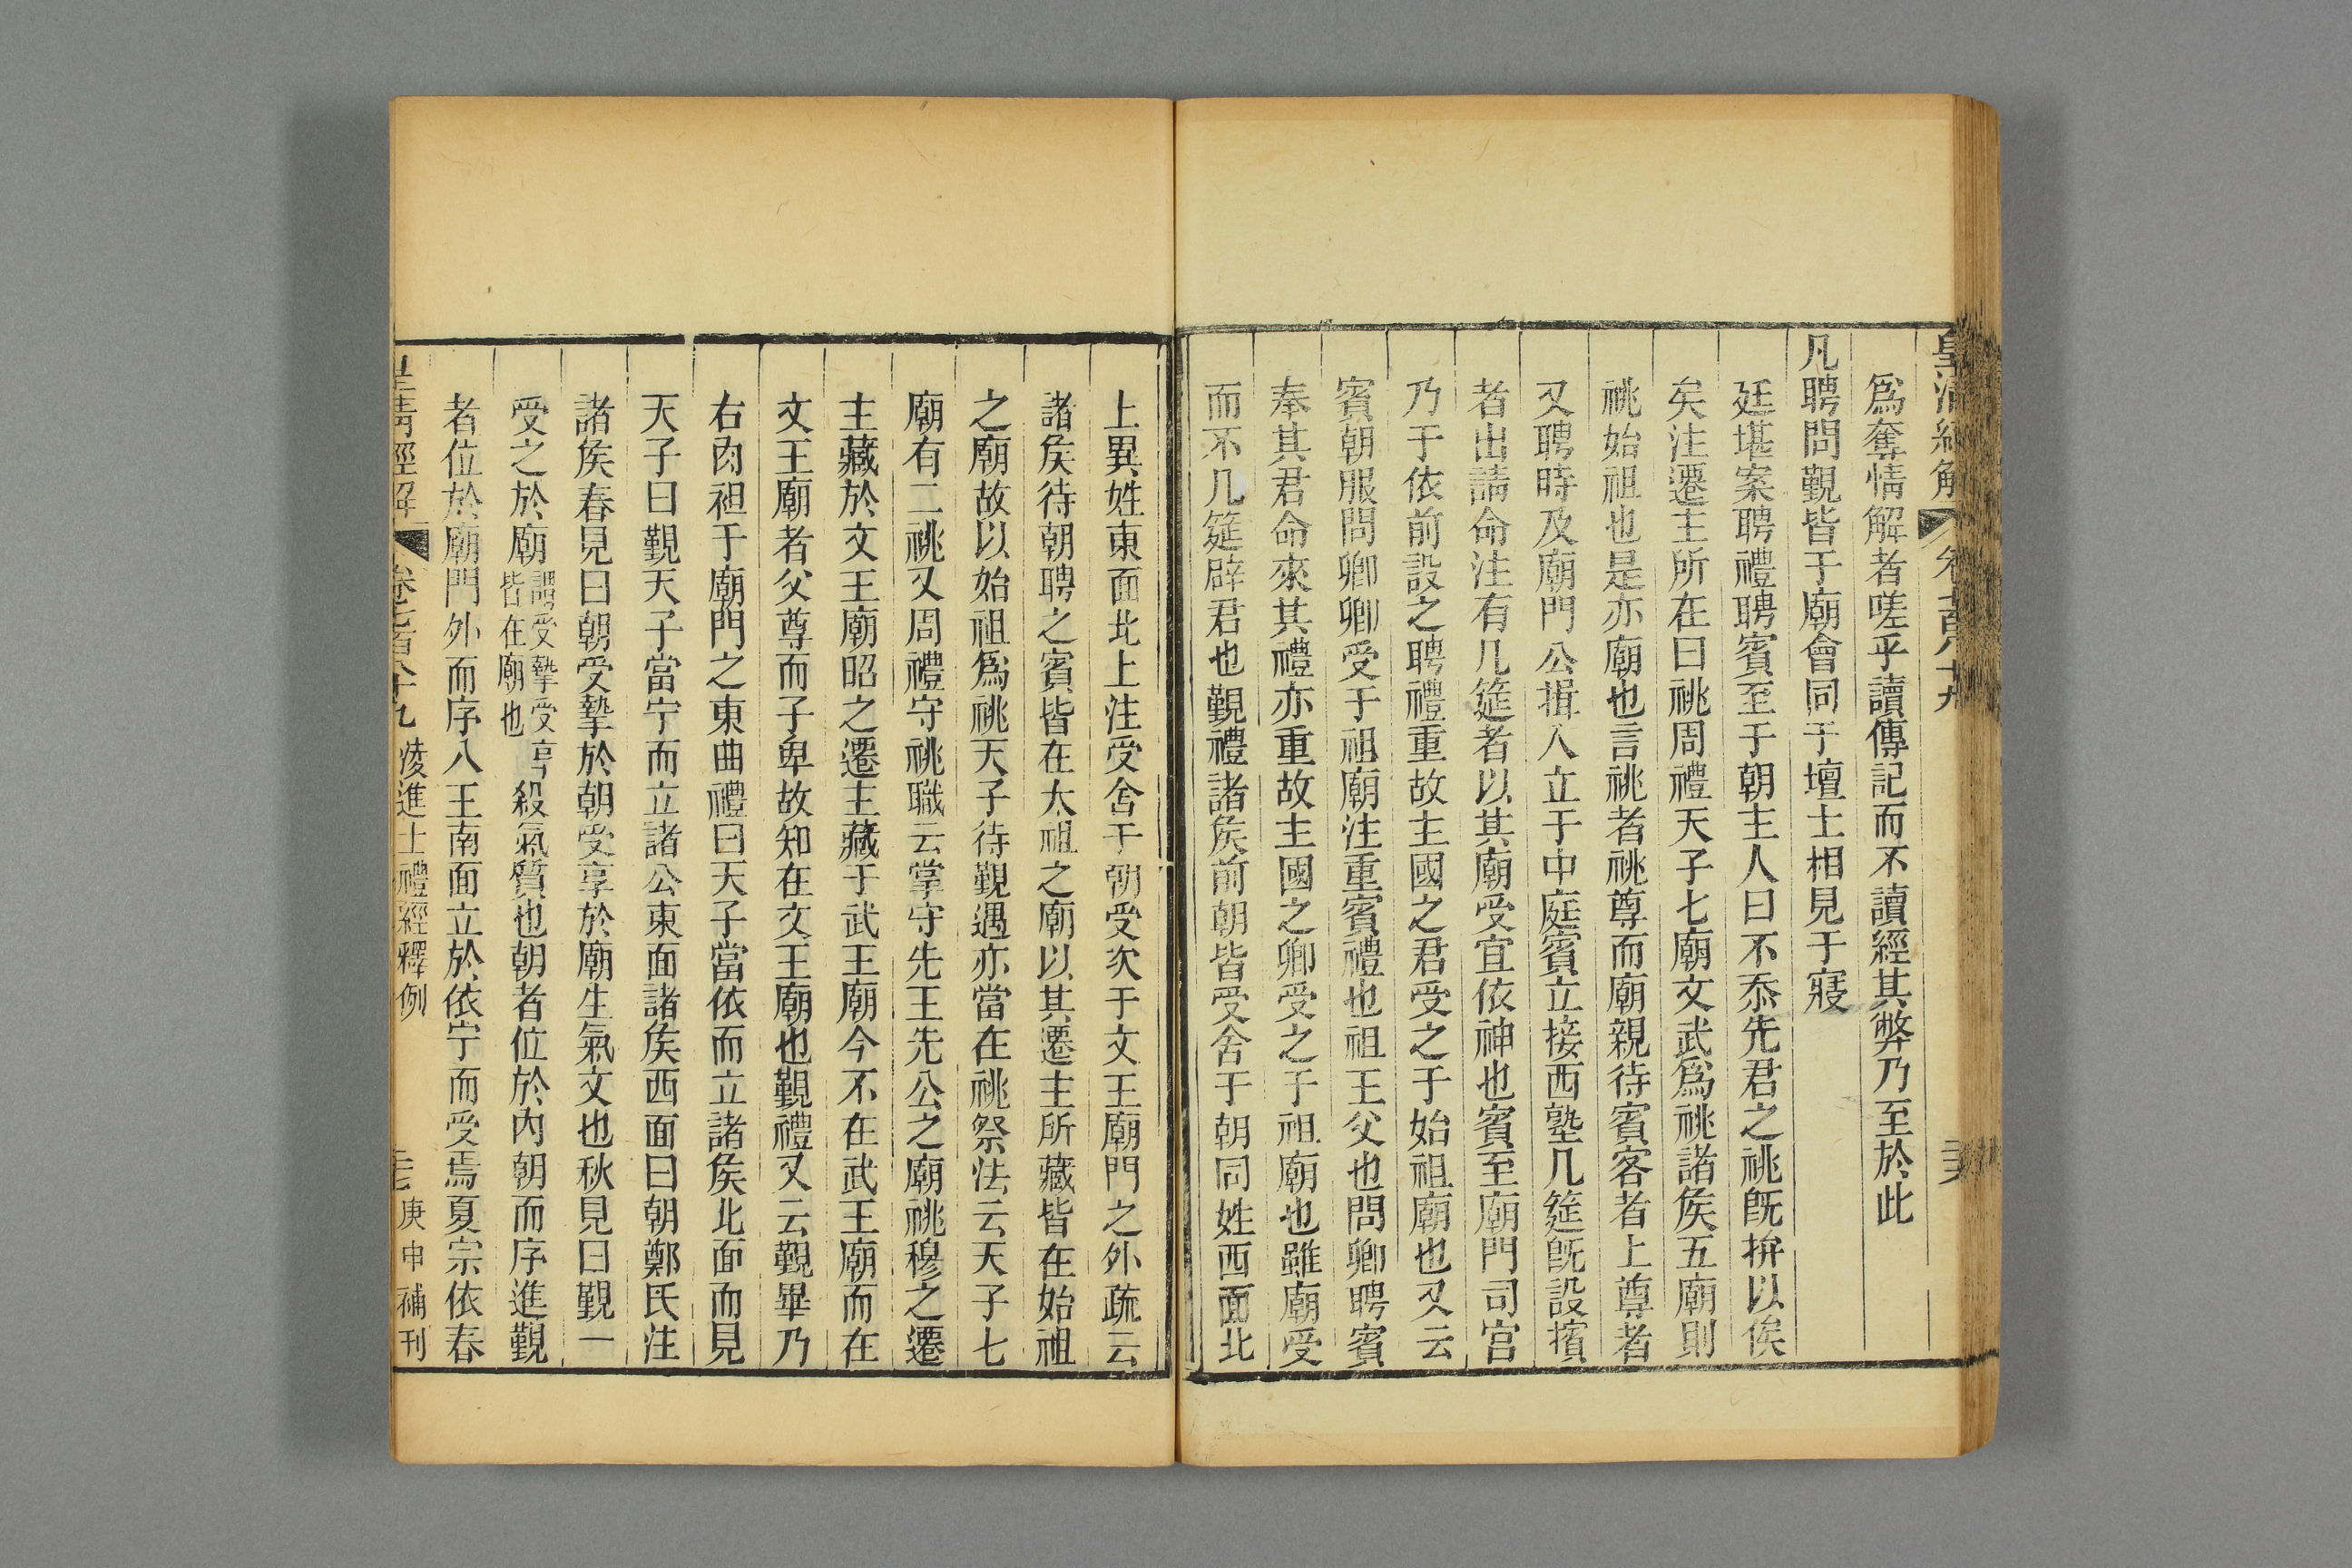 皇清經解 卷七百八十九 三六
爲奪情解者嗟乎讀傳記而不讀經其弊乃至於此
凡聘問覲皆于廟會同于壇士相見于寢
廷堪案聘禮聘賓至于朝主人曰不忝先君之祧旣拚以俟
矣注遷主所在曰祧周禮天子七廟文武爲祧諸矦五廟則
祧始祖也是亦廟也言祧者祧尊而廟親待賓客者上尊者
又聘時及廟門公揖入立于中庭賓立接西塾几筵旣設擯
者出請命注有几筵者以其廟受宜依神也賓至廟門司宮
乃于依前設之聘禮重故主國之君受之于始祖廟也又云
賓朝服問卿卿受于祖廟注重賓禮也祖王父也問卿聘賓
奉其君命來其禮亦重故主國之卿受之于祖廟也雖廟受
而不几筵辟君也覲禮諸矦前朝皆受舍于朝同姓西面北
上異姓東面北上注受舍于朝受次于文王廟門之外疏云
諸矦待朝聘之賓皆在太祖之廟以其遷主所藏皆在始祖
之廟故以始祖爲祧天子待覲遇亦當在祧祭法云天子七
廟有二祧又周禮守祧職云掌守先王先公之廟祧穆之遷
主藏於文王廟昭之遷主藏于武王廟今不在武王廟而在
文王廟者父尊而子卑故知在文王廟也覲禮又云覲畢乃
右肉袒于廟門之東曲禮曰天子當依而立諸矦北面而見
天子曰覲天子當宁而立諸公東面諸矦西面曰朝鄭氏注
諸矦春見曰朝受摯於朝受享於廟生氣文也秋見曰覲一
受之於廟謂受摯受享皆在廟也殺氣質也朝者位於內朝而序進覲
者位於廟門外而序入王南面立於依宁而受焉夏宗依春
皇清經解 卷七百八十九 淩進士禮經釋例 三七 庚申補刊